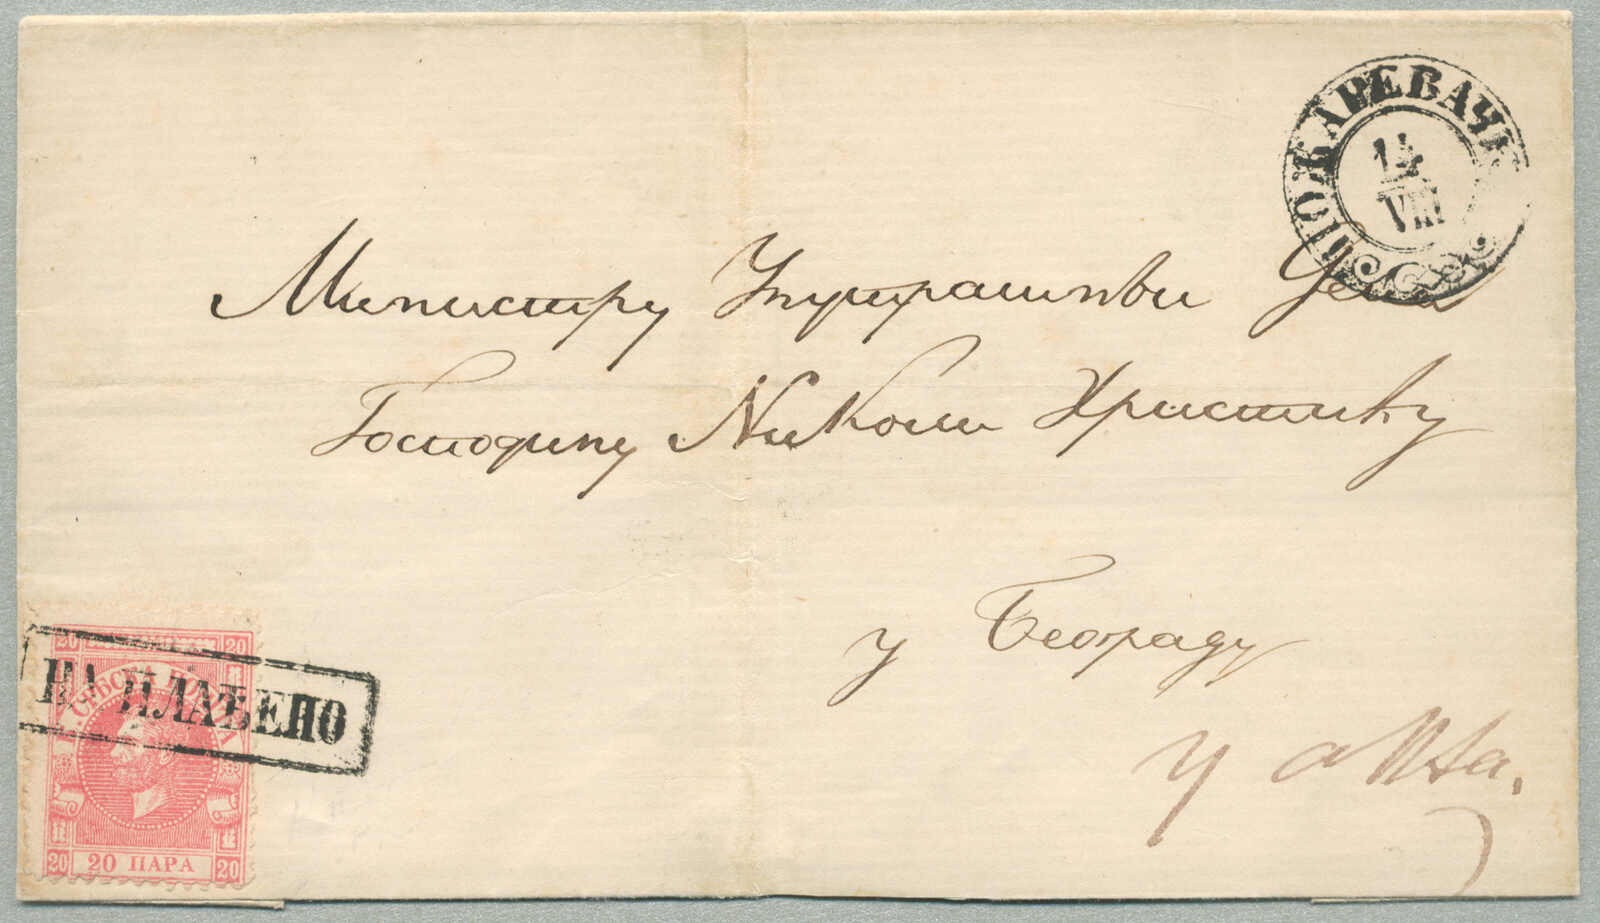 ПОЖАРЕВАЧК
14
VIII
Министру Унутрашњи Дела
Господину Николи Христићу
у Београду
у
НАПЛАЋЕНО
20 20
СРБСКА ПОШТА
20 20 ПАРА 20